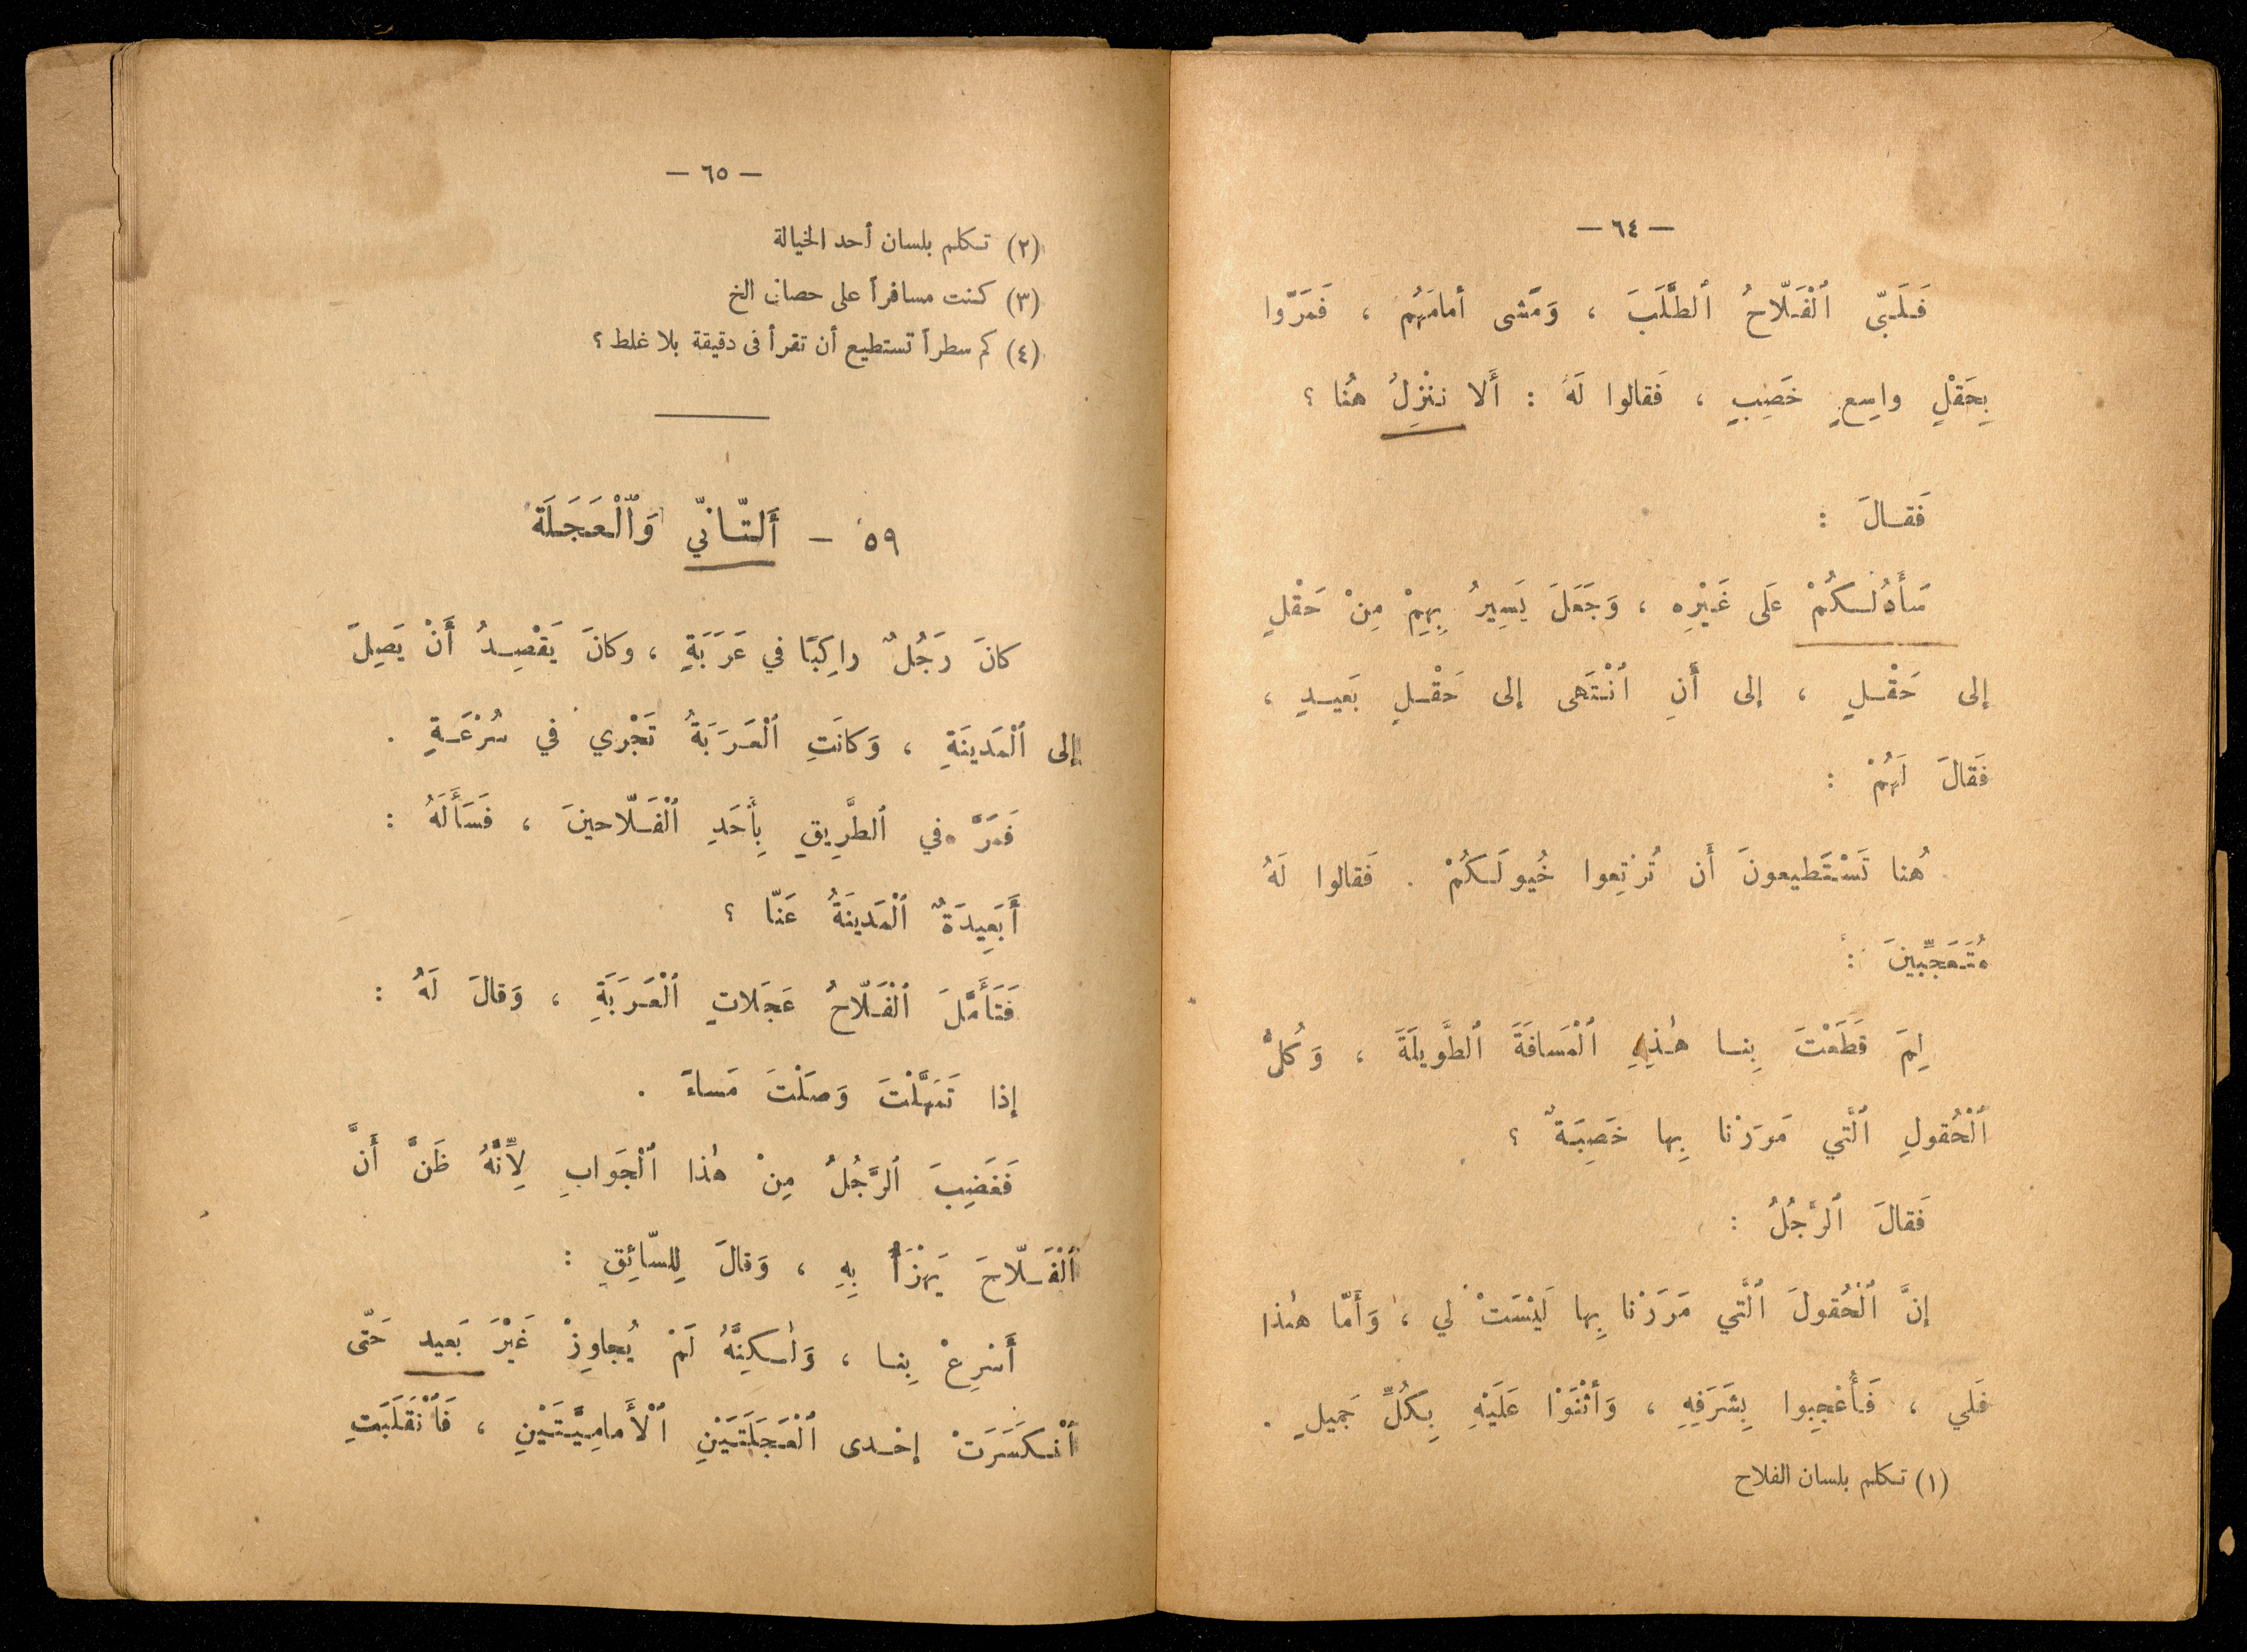 — ٦٤ —
فَلَبّى ٱلْفَلّاحُ ٱلطَّلَبَ ، وَمَشى أمامَهُم ، فَمَرّوا
بِحَقْلٍ واسِعٍ خَصِيبٍ ، فَقالوا لَهُ : أَلا نَنْزِلُ هُنا ؟
فَقالَ :
سَأَدُلُّكُمْ عَلى غَيْرِهِ ، وَجَعَلَ يَسِيرُ بِهِمْ مِنْ حَقْلٍ
إلى حَقْلٍ ، إلى أَنِ ٱنْتَهى إلى حَقْلٍ بَعيدٍ ،
فَقالَ لَهُمْ :
هُنا تَسْتَطيعونَ أَن تُرْتِعوا خُيولَكُمْ . فَقالوا لَهُ
مُتَعَجِّبينَ :
لِمَ قَطَعْتَ بِنا هٰذِهِ ٱلْمَسافَةَ ٱلطَّويلَةَ ، وَكُلُّ
ٱلْحُقولِ ٱلَّتي مَرَرْنا بِها خَصِبَةٌ ؟
فَقالَ ٱلرَّجُلُ :
إنَّ ٱلْحُقولَ ٱلَّتي مَرَرْنا بِها لَيْسَتْ لي ، وَأَمّا هٰذا
فَلي ، فَأُعْجِبوا بِشَرَفِهِ ، وَأَثْنَوْا عَلَيْهِ بِكُلِّ جَميلٍ .
(١) تكلم بلسان الفلاح
— ٦٥ —
(٢) تكلم بلسان أحد الخيالة
(٣) كنت مسافراً على حصان الخ
(٤) كم سطراً تستطيع أن تقرأ في دقيقة بلا غلط ؟
٥٩ — أَلتّانّي وَٱلْعَجَلَة
كانَ رَجُلٌ راكِبًا في عَرَبَةٍ ، وكانَ يَقْصِدُ أَنْ يَصِلَ
إلى ٱلْمَدينَةِ ، وَكانَتِ ٱلْعَرَبَةُ تَجْري في سُرْعَةٍ .
فَمَرَّ في ٱلطَّرِيقِ بِأَحَدِ ٱلْفَلّاحينَ ، فَسَأَلَهُ :
أَبَعِيدَةٌ ٱلْمَدينَةُ عَنّا ؟
فَتَأَمَّلَ ٱلْفَلّاحُ عَجَلاتِ ٱلْعَرَبَةِ ، وَقالَ لَهُ :
إذا تَمَهَّلْتَ وَصَلْتَ مَساءً .
فَغَضِبَ ٱلرَّجُلُ مِنْ هٰذا ٱلْجَوابِ لِأَنَّهُ ظَنَّ أَنَّ
ٱلْفَلّاحَ يَهْزَأُ بِهِ ، وَقالَ لِلسّائِقِ :
أَسْرِعْ بِنا ، وَلٰكِنَّهُ لَمْ يُجاوِزْ غَيْرَ بَعيد حَتّى
ٱنْكَسَرَتْ إحْدى ٱلْعَجَلَتَيْنِ ٱلْأَمامِيَّتَيْنِ ، فَٱنْقَلَبَتِ